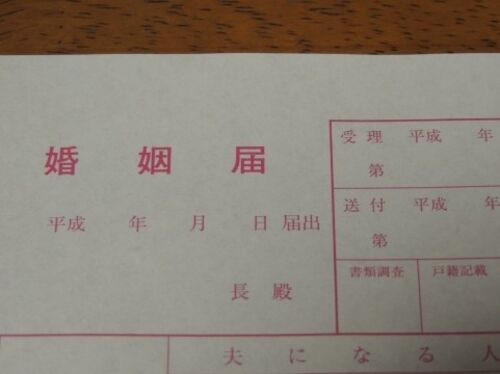 婚姻届
平成 年 月 日 届出
長 殿
受理 平成 年
第
送付 平成 年
第
書類調査 戸籍記載
夫になる人